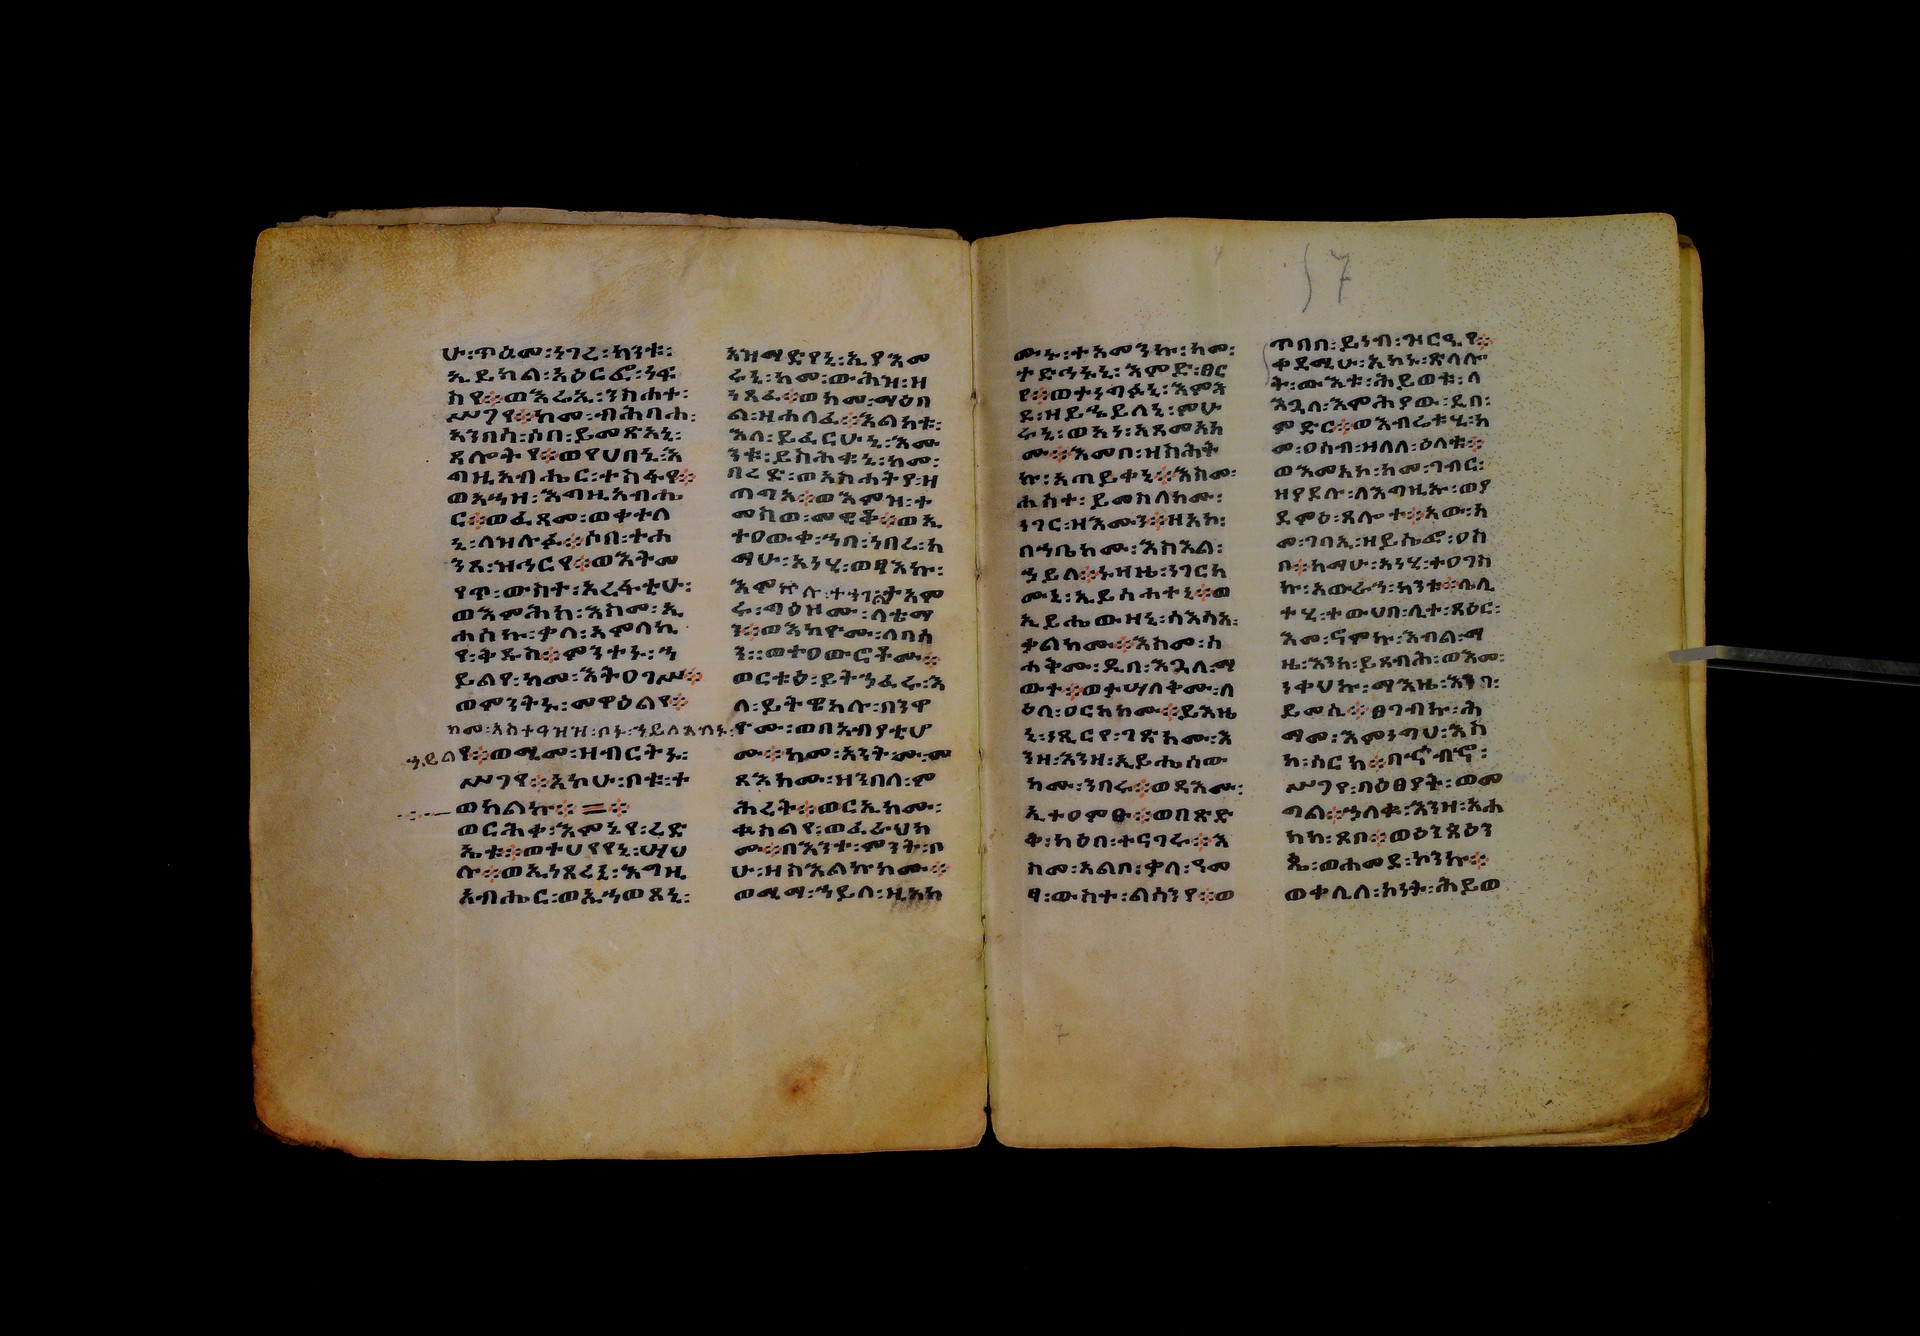 ሁ፡ጥዕመ፡ነገረ፡ከንቱ፡
ኢይክል፡አዕርፎ፡ነፍ
ስየ፨ወእሬኢ፡ንስሐተ፡
ሥጋየ፨ከመ፡ብሕባሐ፡
አንበሳ፡ሶበ፡ይመጽአኒ፡
ጸሎትየ፨ወየሀበኒ፡እ
ግዚአብሔር፡ተስፋየ፨
ወአኀዘ፡እግዚአብሔ
ር፨ወፈጸመ፡ወቀተለ
ኒ፡ለዝሉፉ፨ሶበ፡ተሐ
ንጸ፡ዝኅርየ፨ወእትመ
የጥ፡ውስተ፡አረፋቲሁ፡
ወእምሕከ፡እስመ፡ኢ
ሐሰኩ፡ቃለ፡አምላኪ
የ፡ቅዱስ፨ምንተኑ፡ኀ
ይልየ፡ከመ፡እትዐገሥ፨
ወምንትኑ፡መዋዕልየ፨
ከመ፡አስተዓዝዝ፡ቦኑ፡ኀይለ፡እብኑ፡
ኀይል
የ፨ወሚመ፡ዝብርትኑ፡
ሥጋየ፨አኮሁ፡ቦቱ፡ተ
ወከልኩ፨=፨
ወርሕቀ፡እምኔየ፡ረድ
ኤቱ፨ወተሀየየኒ፡ሣህ
ሉ፨ወኢነጸረኒ፡እግዚ
አብሔር፡ወኢኀወጸኒ፡
አዝማድየኒ፡ኢያእመ
ሩኒ፡ከመ፡ውሕዝ፡ዘ
ነጸፈ፨ወከመ፡ማዕበ
ል፡ዘሐለፈ፨እልክቱ፡
እለ፡ይፈርሁኒ፡እሙ
ንቱ፡ይከሕቁኒ፡ከመ፡
በረድ፡ወአስሐትያ፡ዘ
ጠግአ፨ወእምዝ፡ተ
መስወ፡መዊቆ፨ወኢ
ተዐውቀ፡ኀበ፡ነበረ፡ከ
ማሁ፡አነሂ፡ወፃእኩ፡
እምኵሉ፡ተኀጒልትእም
ሩ፡ግዕዘሙ፡ለቴማ
ን፨ወእከዮሙ፡ለሳባ
ን፡፡ወተዐውሮቶሙ፨
ወርቱዕ፡ይትኀፈሩ፡እ
ለ፡ይትዌከሉ፡በንዋ
ዮሙ፡ወበአብያቲሆ
ሙ፨ከመ፡አንትሙ፡መ
ጻእክሙ፡ዘንበለ፡ም
ሕረት፨ወርኢክሙ፡
ቍስልየ፡ወፈራህክ
ሙ፨በእንተ፡ምንት፡ቦ
ሁ፡ዘስእልኩክሙ፨
ወሚማ፡ኀይለ፡ዚአክ
ሙኑ፡ተአመንኩ፡ከመ፡
ተድኅኑኒ፡እምድ፡ፀር
የ፨ወተነግፉኒ፡እምእ
ደ፡ዘይኄይለኒ፡ምሁ
ሩኒ፡ወአነ፡አጸመእክ
ሙ፨እመቦ፡ዘስሕት
ኩ፡አጠይቁኒ፨እስመ፡
ሐሰተ፡ይመስለክሙ፡
ነገር፡ዘእሙን፨ዘአኮ፡
በኀቤክሙ፡እስእል፡
ኀይለ፨ኑዛዜ፡ነገርክ
ሙኒ፡ኢይሰሐተኒ፨ወ
ኢይሔውዘኒ፡ስእሰአ፡
ቃልክሙ፨እስመ፡ስ
ሐቅሙ፡ዲበ፡እጓለ፡ማ
ውታ፨ወተሣለቅሙ፡ለ
ዕለ፡ዐርክክሙ፨ይእዜ
ኒ፡ነጺርየ፡ገጽክሙ፡እ
ንዘ፡እንዘ፡ኢይሔሰው
ክሙ፡ንበሩ፨ወዳእሙ፡
ኢተዐምፁ፨ወበጽድ
ቅ፡ክዕበ፡ተናገሩ፨እ
ስመ፡አልቦ፡ቃለ፡ዓመ
ፃ፡ውስተ፡ልሳንየ፨ወ
57
ጥበበ፡ይነብ፡ዝርዒየ፨
ቀዳሚሁ፡አኮኑ፡ጽላሎ
ት፡ውእቱ፡ሕይወቱ፡ለ
እጓለ፡እምሕያው፡ዲበ፡
ምድር፨ወእብሬቱሂ፡ከ
መ፡ዐስብ፡ዘለለ፡ዕለቱ፨
ወእመአኮ፡ከመ፡ገብር፡
ዘየደሉ፡ለእግዚኡ፡ወያ
ደምዕ፡ጸሎተ፨አው፡ከ
መ፡ገባኢ፡ዘይሴፎ፡ዐስ
በ፨ከማሁ፡አነሂ፡ተዐገስ
ኩ፡አውራኀ፡ከንቱ፨ሌሊ
ተሂ፡ተውህበ፡ሊተ፡ጸዕር፡
እመ፡ኖምኩ፡እብል፡ማ
ዜ፡እንከ፡ይጸብሕ፡ወእመ፡
ነቃህኩ፡ማእዜ፡እንከ፡
ይመሲ፨ፀገብኩ፡ሕ
ማመ፡እምነግህ፡እስ
ከ፡ሰርክ፨በዓብኖ፡
ሥጋየ፡በዕፀያት፡ወመ
ግል፨ኀለቁ፡እንዘ፡አሐ
ክክ፡ጸበ፨ወዕንጸዕን
ጼ፡ወሐመደ፡ኮንኩ፨
ወቀሊለ፡ከነት፡ሕይወ
7